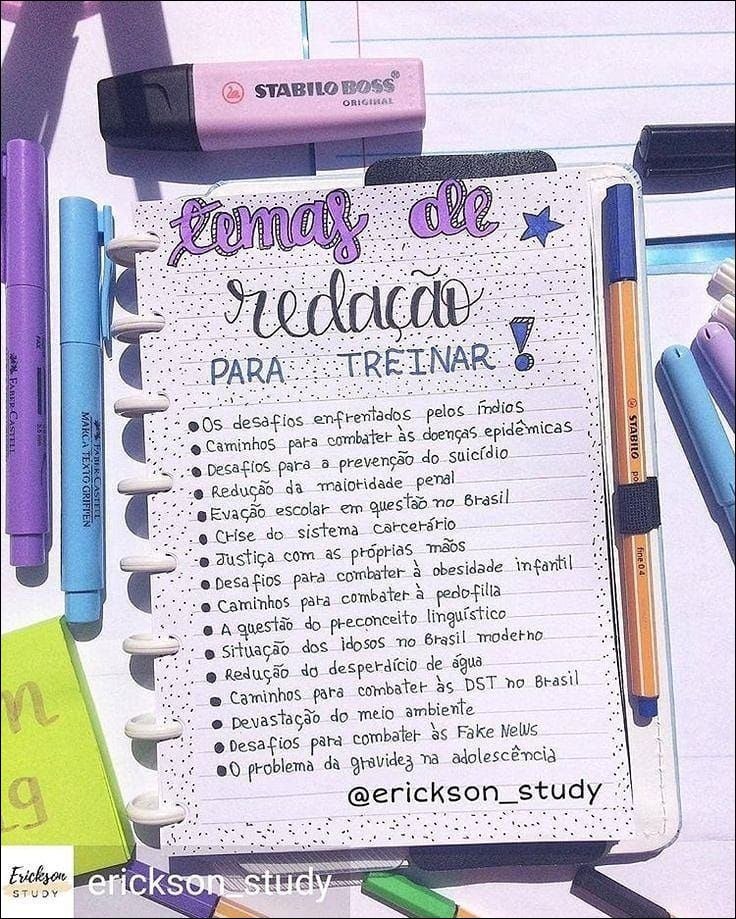 STABILO BOSS
ORIGINAL
temas de
redação
PARA TREINAR!
• Os desafios enfrentados pelos índios
• Caminhos para combater às doenças epidêmicas
• Desafios para a prevenção do suicídio
• Redução da maioridade penal
• Evação escolar em questão no Brasil
• Crise do sistema carcerário
• Justiça com as próprias mãos
• Desafios para combater à obesidade infantil
• Caminhos para combater à pedofilia
• A questão do preconceito linguístico
• Situação dos idosos no Brasil moderno
• Redução do desperdício de água
• Caminhos para combater às DST no Brasil
• Devastação do meio ambiente
• Desafios para combater às Fake News
• O problema da gravidez na adolescência
@erickson_study
FABER-CASTELL
FABER-CASTELL
MARCA TEXTO GRIFPEN
STABILO
fine 0.4
Erickson
STUDY
erickson_study